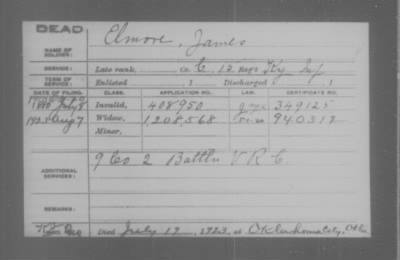 DEAD
NAME OF SOLDIER: Elmore, James
SERVICE: Late rank, Co. C, 12 Reg't Ky Inf
TERM OF SERVICE: Enlisted , 1 Discharged , 1
DATE OF FILING. CLASS. APPLICATION NO. LAW. CERTIFICATE NO.
1880 July 8 Invalid, 408,950 349125
Aug 7 Widow, 1,208,568 940312
Minor,
ADDITIONAL SERVICES: 9 Co 2 Battln V R C.
REMARKS:
Died July 19, 1923, at Oklahoma City, Okla